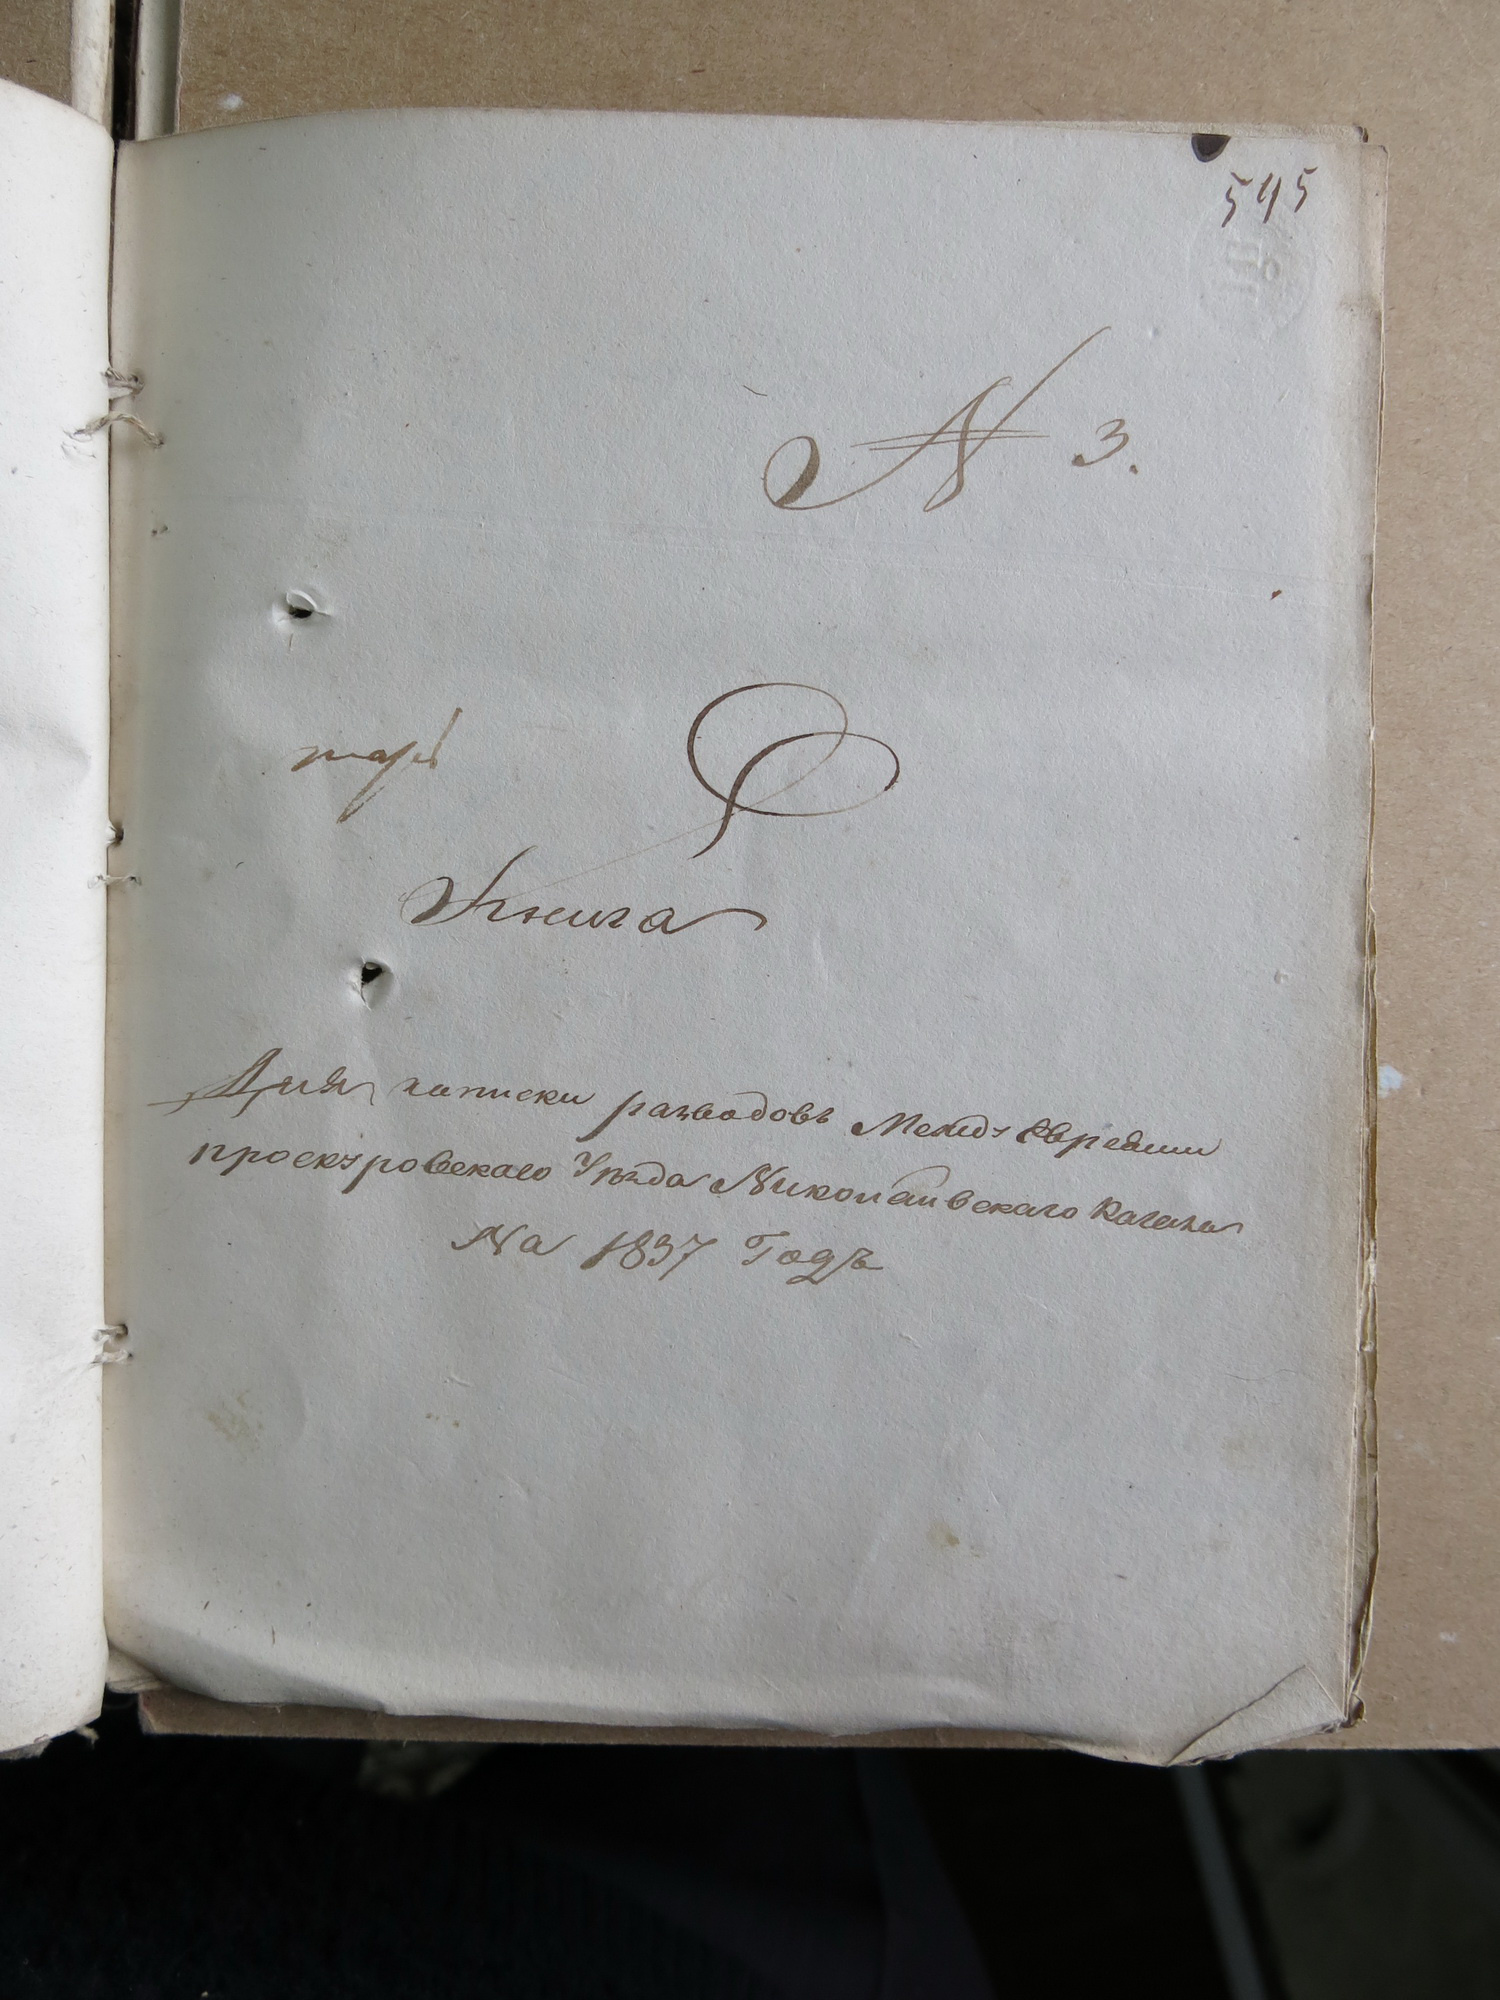 545
№ 3.
Книга
Для записки разводовъ Между Евреями
проскуровскаго Уѣзда Николаивскаго Кагала
На 1837 Годъ